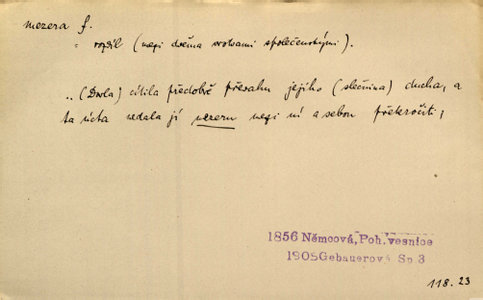 mezera f.
= rozdíl (mezi dvěma vrstvami společenskými).
„(Dorla) cítila předobře převahu jejího (slečnina) ducha, a
ta úcta nedala jí mezeru mezi ní a sebou překročiti;
1856 Němcová, Poh. vesnice
1905 Gebauerová Sp 3
118. 23